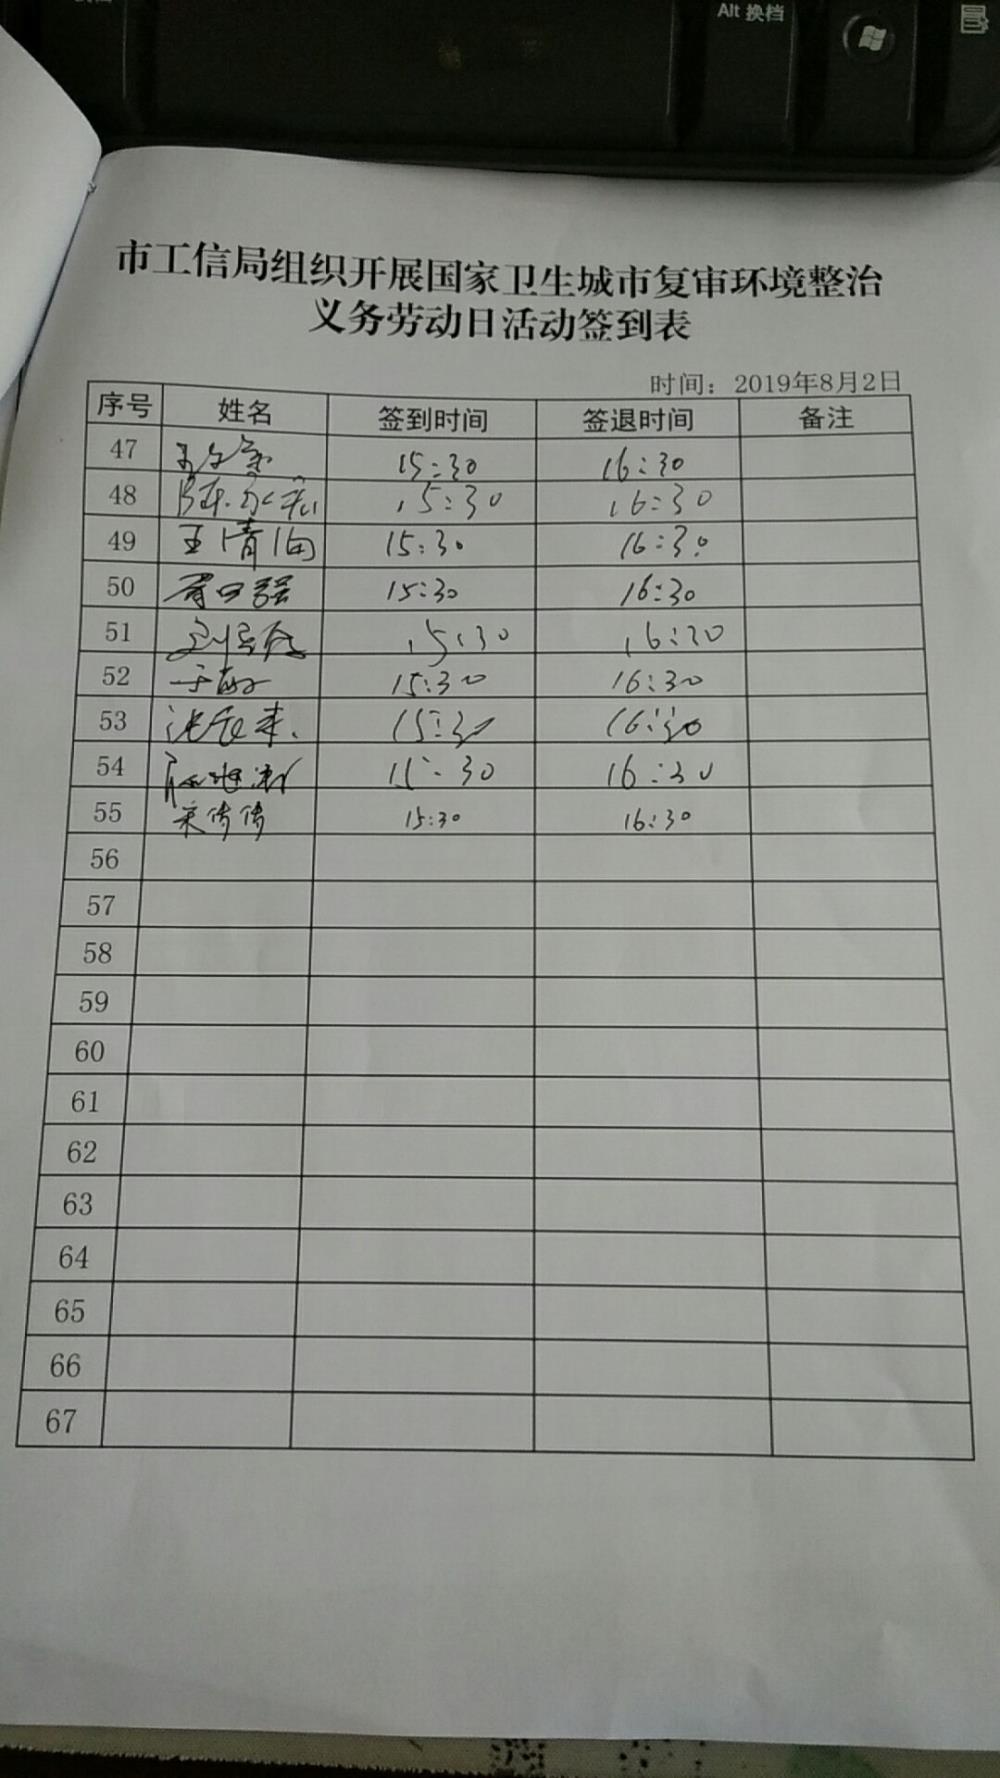 Alt 换档
市工信局组织开展国家卫生城市复审环境整治
义务劳动日活动签到表
时间：2019年8月2日
序号 姓名 签到时间 签退时间 备注
47 15:30 16:30
48 15:30 16:30
49 王清 15:30 16:30
50 15:30 16:30
51 15:30 16:30
52 15:30 16:30
53 15:30 16:30
54 15:30 16:30
55 宋倩倩 15:30 16:30
56
57
58
59
60
61
62
63
64
65
66
67